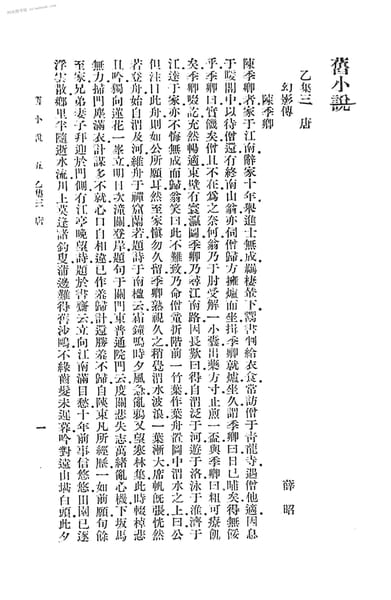 舊小說
乙集三 唐
幻影傳 薛昭
陳季卿
陳季卿者家于江南辭家十年舉進士無成羈棲輦下鬻書判給衣食常訪僧于青龍寺遇僧他適因息
于暖閣中以待僧還有終南山翁亦伺僧歸方擁爐而坐揖季卿就爐坐久謂季卿曰日已晡矣得無餒
乎季卿曰實饑矣僧且不在爲之奈何翁乃于肘後解一小囊出藥方寸止煎一盃與季卿曰粗可療飢
矣季卿啜訖充然暢適東壁有寰瀛圖季卿乃尋江南路因長歎曰得自渭泛于河遊于洛泳于淮濟于
江達于家亦不悔無成而歸翁笑曰此不難致乃命僧童折階前一竹葉作葉舟置圖中渭水之上曰公
但注目此舟則如公所願耳然至家愼勿久留季卿熟視久之稍覺渭水波浪一葉漸大席帆旣張恍然
若登舟始自渭及河維舟于禪窟蘭若題詩于南楹云霜鐘鳴時夕風急亂鴉又望寒林集此時輟棹悲
且吟獨向蓮花一峯立明日次潼關登岸題句于關門東普通院門云度關悲失志萬緒亂心機下坂馬
無力掃門塵滿衣計謀多不就心口自相違已作羞歸計還勝羞不歸自陝東凡所經歷一如前願旬餘
至家兄弟妻子拜迎於門側有江亭晚望詩題於書齋云立向江南滿目愁十年前事信悠悠田園已逐
浮雲散鄉里半隨逝水流川上莫逢諸釣叟蒲邊難得舊沙鷗不緣齒髮未遲暮吟對遠山堪白頭此夕
舊小說 五 乙集三 唐
一